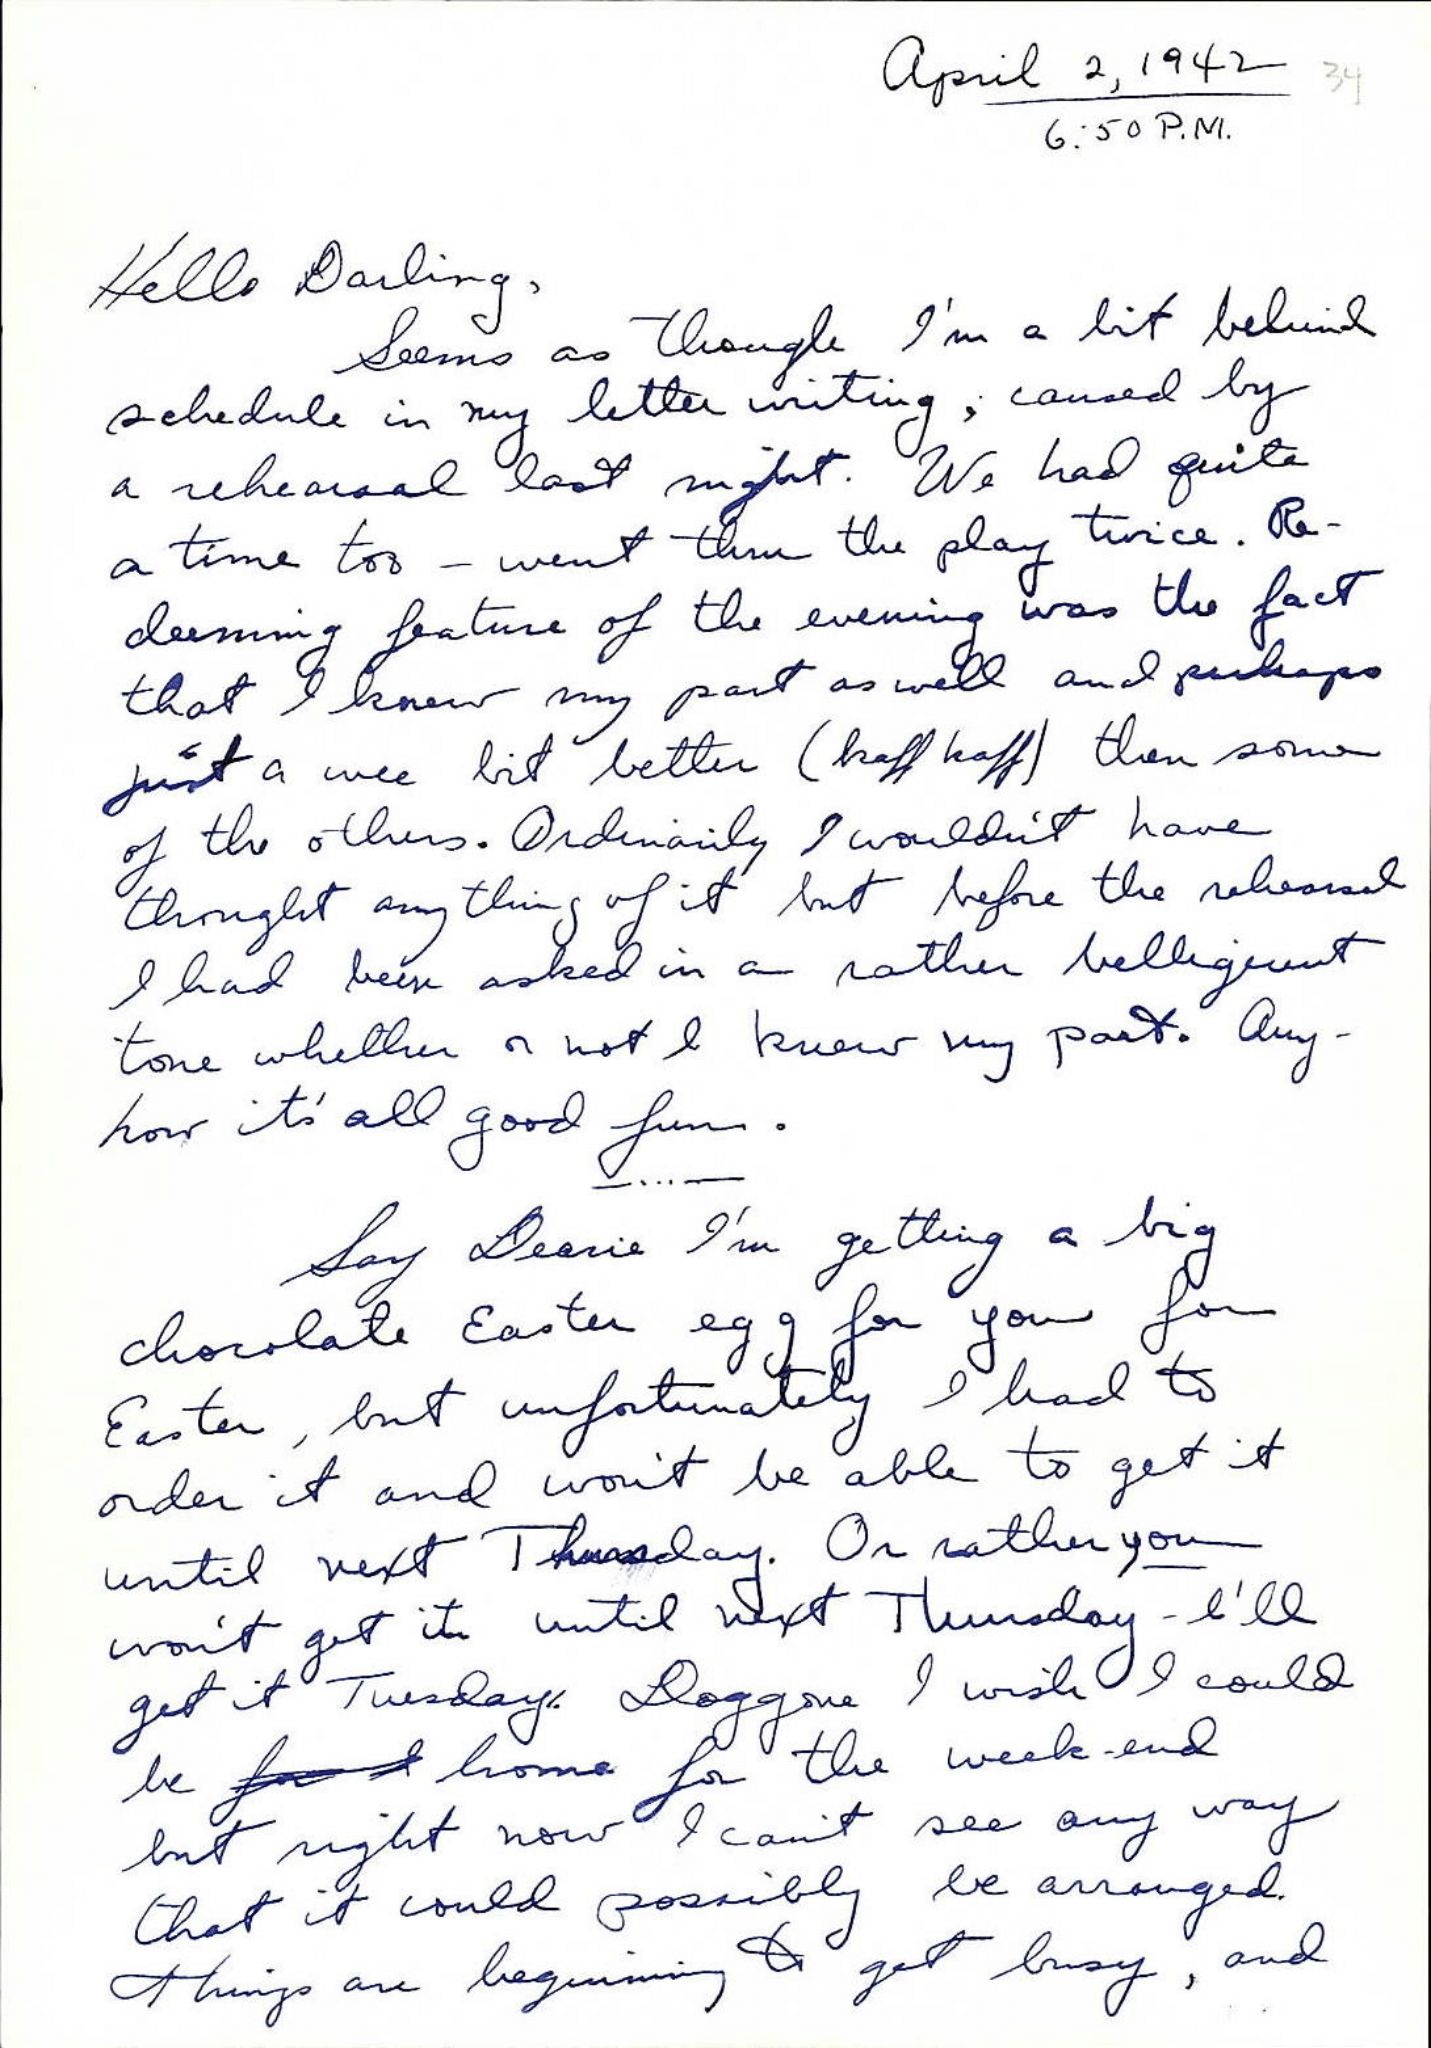 April 2, 1942
34
6:50 P.M.
Hello Darling,
Seems as though I'm a bit behind
schedule in my letter writing, caused by
a rehearsal last night. We had quite
a time too – went thru the play twice. Re-
deeming feature of the evening was the fact
that I knew my part as well and perhaps
just a wee bit better (kaff kaff) then some
of the others. Ordinarily I wouldn't have
thought anything of it but before the rehearsal
I had been asked in a rather belligerent
tone whether or not I knew my part. Any-
how it's all good fun.
Say Dearie I'm getting a big
chocolate Easter egg for you for
Easter, but unfortunately I had to
order it and won't be able to get it
until next Thursday. Or rather you
won't get it until next Thursday - I'll
get it Tuesday. Doggone I wish I could
be for I home for the week-end
but right now I can't see any way
that it could possibly be arranged.
Things are beginning to get busy, and